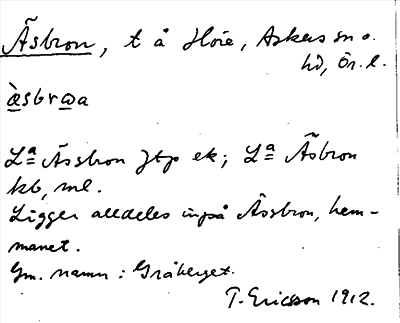 Äsbron, t å Höie, Askers sn o.
hd, Ör. l.
æsbrωa
La Ässbron Jtp ek; La Äsbron
kb, ml.
Ligger alldeles inpå Åssbron, hem-
manet.
Gm. namn: Gråberget.
T. Ericsson 1912.